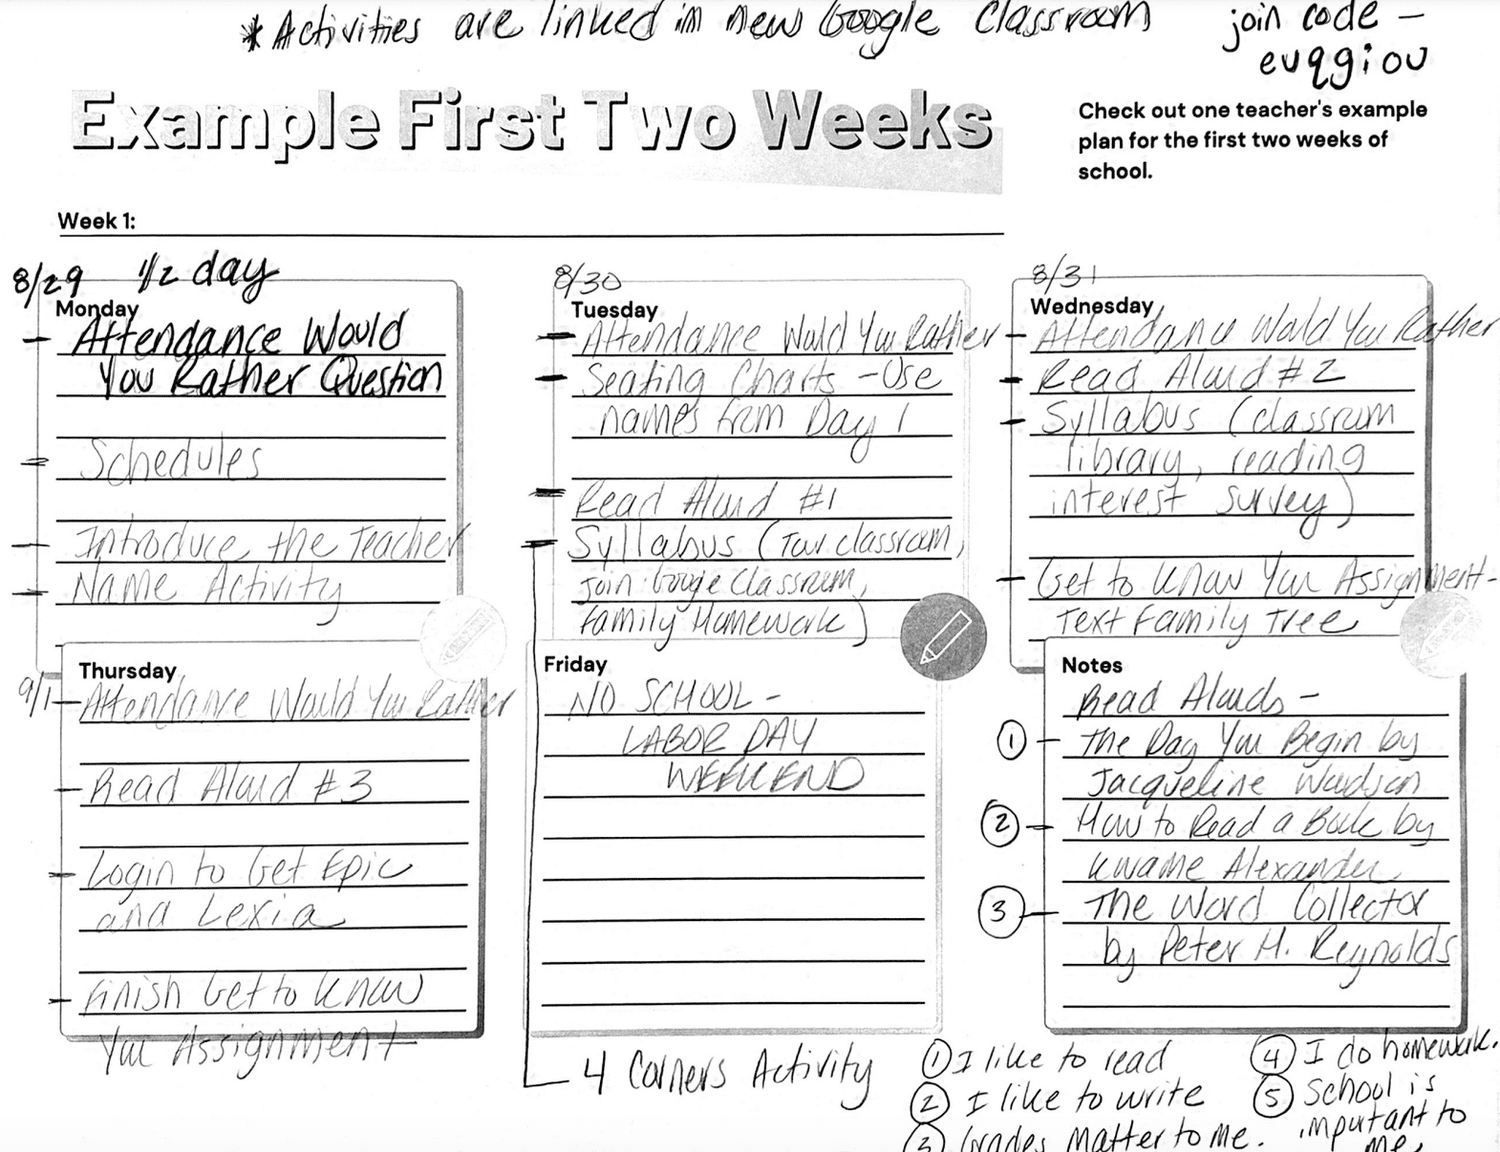 * Activities are linked in new Google Classroom
join code -
euqgiou
Example First Two Weeks
Check out one teacher's example
plan for the first two weeks of
school.
Week 1:
8/29 1/2 day
Monday
- Attendance Would
You Rather Question
- Schedules
- Introduce the Teacher
- Name Activity
8/30
Tuesday
- Attendance Would You Rather
- Seating Charts - Use
names from Day 1
- Read Aloud #1
- Syllabus (Tour classroom,
join Google Classroom,
Family Homework)
8/31
Wednesday
- Attendance Would You Rather
- Read Aloud #2
- Syllabus (classroom
library, reading
interest survey)
- Get to Know You Assignment -
Text Family Tree
Thursday
9/1 - Attendance Would You Rather
- Read Aloud #3
- Login to Get Epic
and Lexia
- Finish Get to Know
You Assignment
Friday
NO SCHOOL -
LABOR DAY
WEEKEND
Notes
Read Alouds -
1 - The Day You Begin by
Jacqueline Woodson
2 - How to Read a Book by
Kwame Alexander
3 - The Word Collector
by Peter H. Reynolds
4 Corners Activity
1 I like to read
2 I like to write
3 Grades matter to me.
4 I do homework.
5 School is
important to
me.